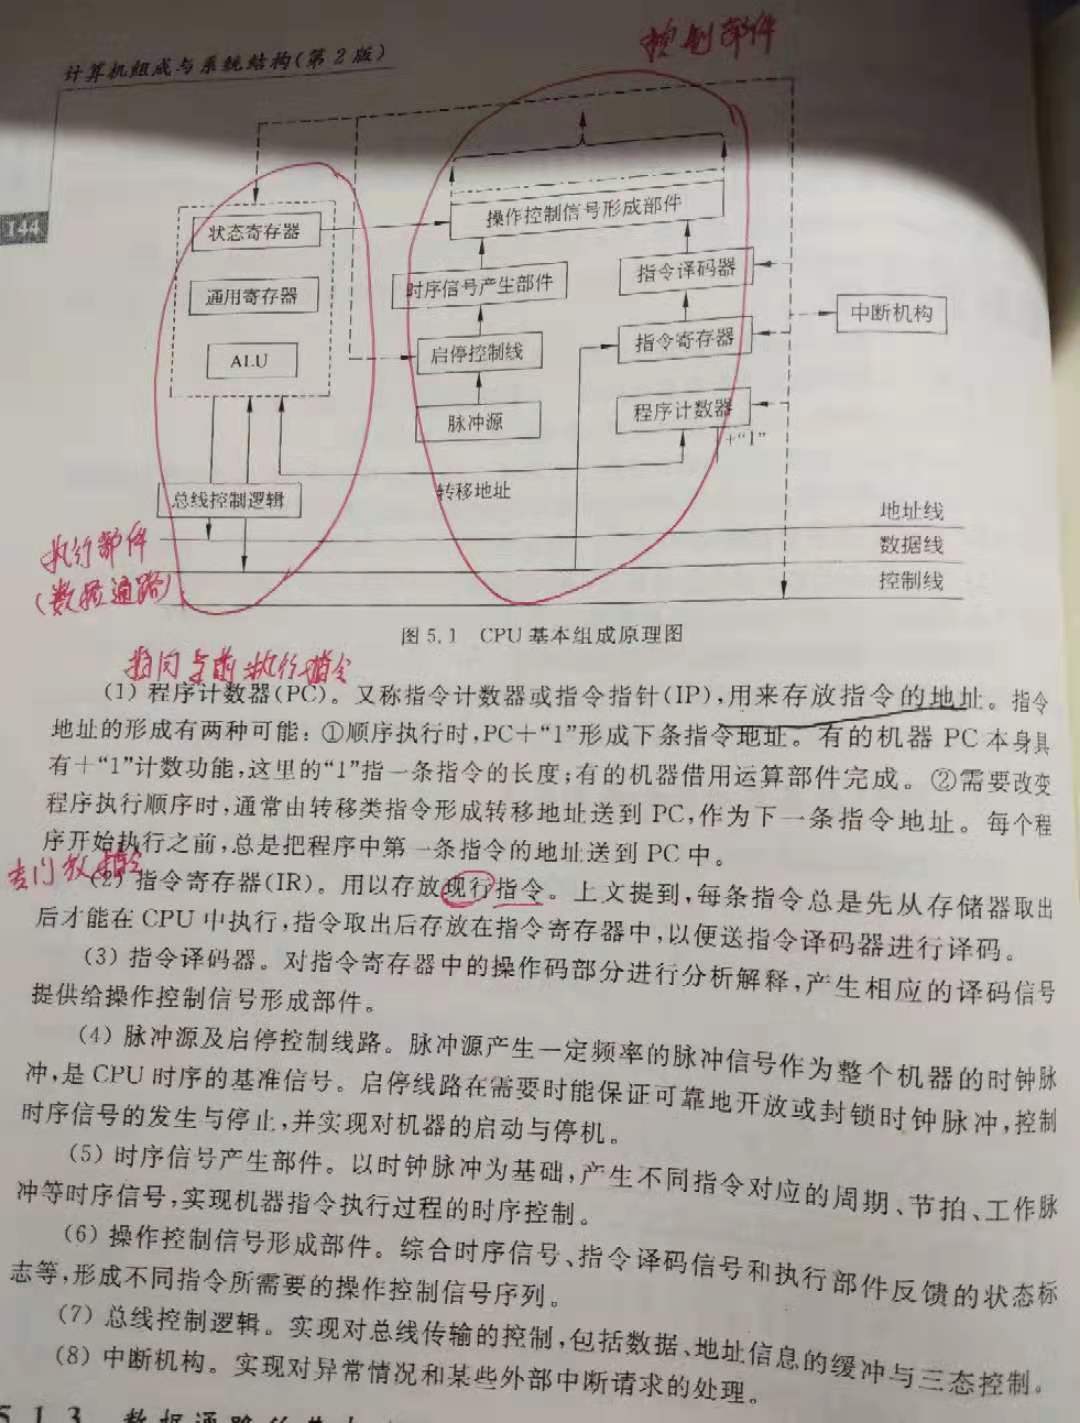 控制部件
计算机组成与系统结构(第2版)
144
操作控制信号形成部件
状态寄存器
时序信号产生部件
指令译码器
通用寄存器
中断机构
启停控制线
指令寄存器
ALU
脉冲源
程序计数器
+“1”
总线控制逻辑
转移地址
地址线
执行部件
数据线
(数据通路)
控制线
图 5.1 CPU 基本组成原理图
指向当前执行指令
(1) 程序计数器(PC)。又称指令计数器或指令指针(IP),用来存放指令的地址。指令
地址的形成有两种可能:①顺序执行时,PC+“1”形成下条指令地址。有的机器 PC 本身具
有+“1”计数功能,这里的“1”指一条指令的长度;有的机器借用运算部件完成。②需要改变
程序执行顺序时,通常由转移类指令形成转移地址送到 PC,作为下一条指令地址。每个程
序开始执行之前,总是把程序中第一条指令的地址送到 PC 中。
专门放指令
(2) 指令寄存器(IR)。用以存放现行指令。上文提到,每条指令总是先从存储器取出
后才能在 CPU 中执行,指令取出后存放在指令寄存器中,以便送指令译码器进行译码。
(3) 指令译码器。对指令寄存器中的操作码部分进行分析解释,产生相应的译码信号
提供给操作控制信号形成部件。
(4) 脉冲源及启停控制线路。脉冲源产生一定频率的脉冲信号作为整个机器的时钟脉
冲,是 CPU 时序的基准信号。启停线路在需要时能保证可靠地开放或封锁时钟脉冲,控制
时序信号的发生与停止,并实现对机器的启动与停机。
(5) 时序信号产生部件。以时钟脉冲为基础,产生不同指令对应的周期、节拍、工作脉
冲等时序信号,实现机器指令执行过程的时序控制。
(6) 操作控制信号形成部件。综合时序信号、指令译码信号和执行部件反馈的状态标
志等,形成不同指令所需要的操作控制信号序列。
(7) 总线控制逻辑。实现对总线传输的控制,包括数据、地址信息的缓冲与三态控制。
(8) 中断机构。实现对异常情况和某些外部中断请求的处理。
5.1.3 数据通路的基本